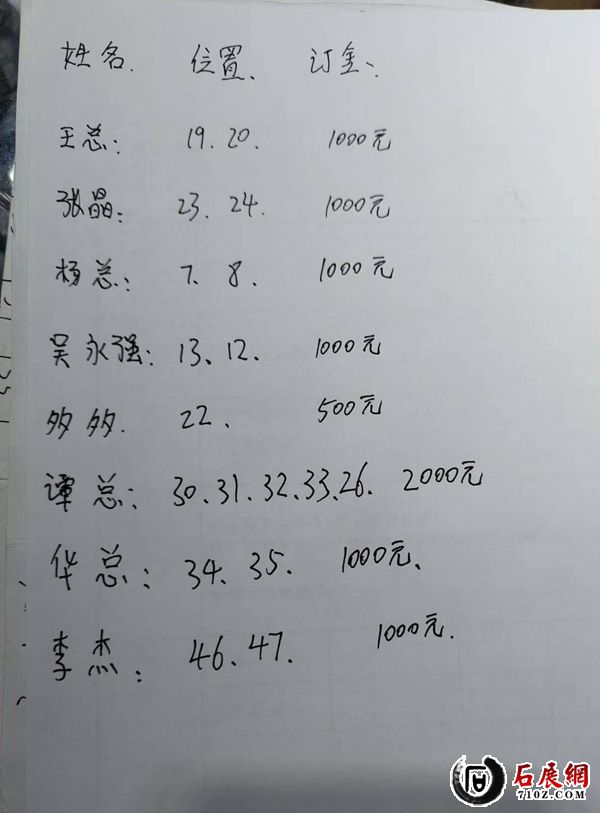 姓名. 位置、 订金、
王总: 19.20. 1000元
张晶: 23. 24. 1000元
杨总: 7. 8. 1000元
吴永强: 13、12. 1000元
多多. 22. 500元
谭总: 30.31.32.33.26. 2000元
华总: 34、35. 1000元、
李杰: 46、47. 1000元.
石展網
7102.COM